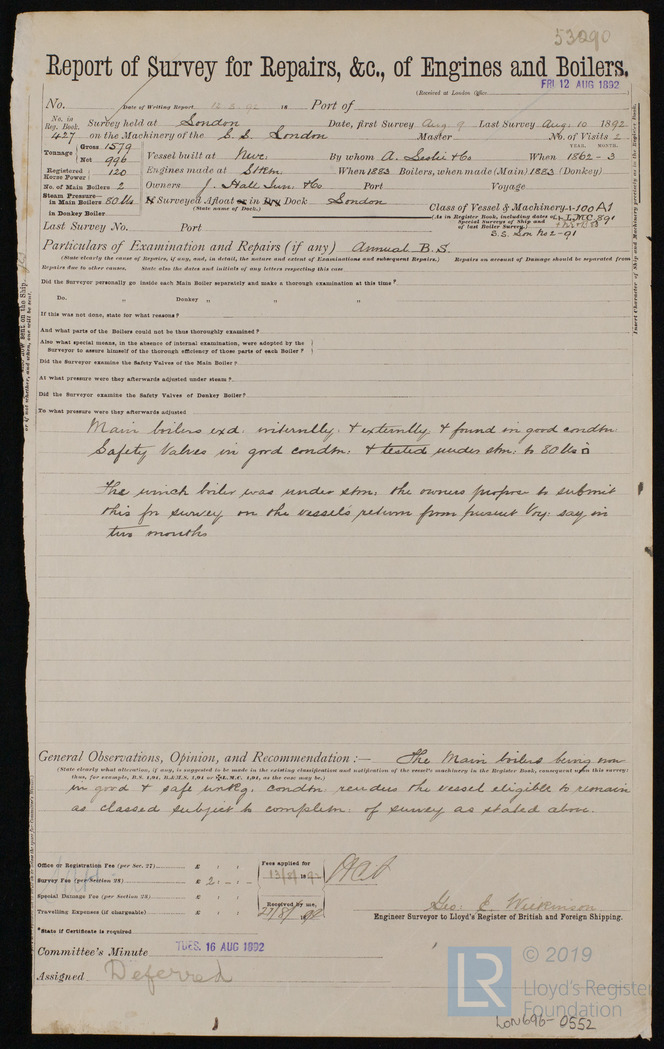 53290
Report of Survey for Repairs, &c., of Engines and Boilers.
(Received at London Office
FRI. 12 AUG 1892
No. Date of Writing Report 12. 8. 92 18 Port of
No. in Reg. Book. Survey held at London Date, first Survey Aug. 9 Last Survey Aug. 10 1892
427 on the Machinery of the S.S. London Master No. of Visits 2
Tonnage Gross 1579
Net 996
Vessel built at Newc. By whom A. Leslie & Co When 1862-3
YEAR. MONTH.
Registered Horse Power 120 Engines made at When 1883 Boilers, when made (Main) 1883 (Donkey)
No. of Main Boilers 2 Owners J. Hall Jun. & Co Port Voyage
Steam Pressure in Main Boilers 80 lbs If Surveyed Afloat or in Dry Dock London
(State name of Dock.)
in Donkey Boiler
Class of Vessel & Machinery 100A1
(As in Register Book, including dates of Special Surveys of Ship and of last Boiler Survey.) + L.M.C. 8,91
S.S. Lon No 2-91
Last Survey No. Port
Particulars of Examination and Repairs (if any) Annual B.S.
(State clearly the cause of Repairs, if any, and, in detail, the nature and extent of Examinations and subsequent Repairs.) Repairs on account of Damage should be separated from
Repairs due to other causes. State also the dates and initials of any letters respecting this case
Did the Surveyor personally go inside each Main Boiler separately and make a thorough examination at this time?
Do. „ Donkey „ „ „
If this was not done, state for what reasons?
And what parts of the Boilers could not be thus thoroughly examined?
Also what special means, in the absence of internal examination, were adopted by the
Surveyor to assure himself of the thorough efficiency of those parts of each Boiler?
Did the Surveyor examine the Safety Valves of the Main Boiler?
At what pressure were they afterwards adjusted under steam?
Did the Surveyor examine the Safety Valves of Donkey Boiler?
To what pressure were they afterwards adjusted
Main boilers exd. internlly. & externlly & found in good condtn
Safety Valves in good condtn: & tested under stm: to 80 lbs □
The winch boiler was under stm: the owners propose to submit
this for survey on the vessel's return from present Voy: say in
two months
General Observations, Opinion, and Recommendation :— The Main boilers being now
(State clearly what alteration, if any, is suggested to be made in the existing classification and notification of the vessel's machinery in the Register Book, consequent upon this survey;
thus, for example, B.S. 1,94, B.&M.S. 1,94 or L.M.C. 1,94, as the case may be.)
in good & safe workg. condtn renders the vessel eligible to remain
as classed subject to completn: of survey as stated above.
Office or Registration Fee (per Sec. 27) £
Survey Fee (per Section 28) £ 2 : - : -
Special Damage Fee (per Section 28) £
Travelling Expenses (if chargeable) £
Fees applied for
13/8/1892
Received by me,
27/8/1892
Geo: E. Wilkinson
Engineer Surveyor to Lloyd's Register of British and Foreign Shipping.
*State if Certificate is required
Committee's Minute TUES. 16 AUG 1892
Assigned Deferred
LR © 2019
Lloyd's Register
Foundation
LON696-0552
Insert Character of Ship and Machinery precisely as in the Register Book.